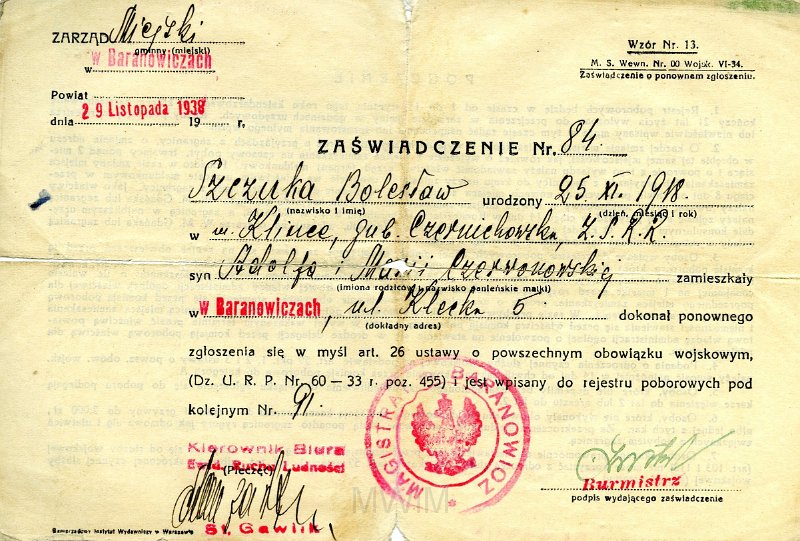 ZARZĄD Miejski
gminny (miejski)
w Baranowiczach
w
Powiat
29 Listopada 1938
dnia 19 r.
Wzór Nr. 13.
M. S. Wewn. Nr. 00 Wojsk. VI-34.
Zaświadczenie o ponownem zgłoszeniu.
ZAŚWIADCZENIE Nr. 84.
Szczuka Bolesław urodzony 25. XI. 1918.
(nazwisko i imię) (dzień, miesiąc i rok)
w m. Klince, gub. Czernichowska, Z.S.R.R.
syn Adolfa i Marii Czerwonowskiej zamieszkały
(imiona rodziców i nazwisko panieńskie matki)
w w Baranowiczach, ul. Klecka 5 dokonał ponownego
(dokładny adres)
zgłoszenia się w myśl art. 26 ustawy o powszechnym obowiązku wojskowym,
(Dz. U. R. P. Nr. 60 — 33 r. poz. 455) i jest wpisany do rejestru poborowych pod
kolejnym Nr. 91.
MAGISTRAT M. BARANOWICZ
Kierownik Biura
Ewid. Ruchu Ludności
(Pieczęć)
St. Gawlik
Burmistrz
podpis wydającego zaświadczenie
MWM
Samorządowy Instytut Wydawniczy w Warszawie